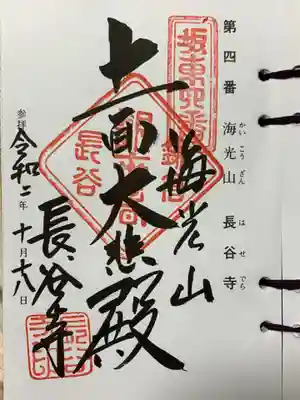 第四番 海光山 長谷寺
かいこうざん はせでら
坂東四番
海光山
十一面大悲殿
長谷寺
参拝 令和二年十月十八日